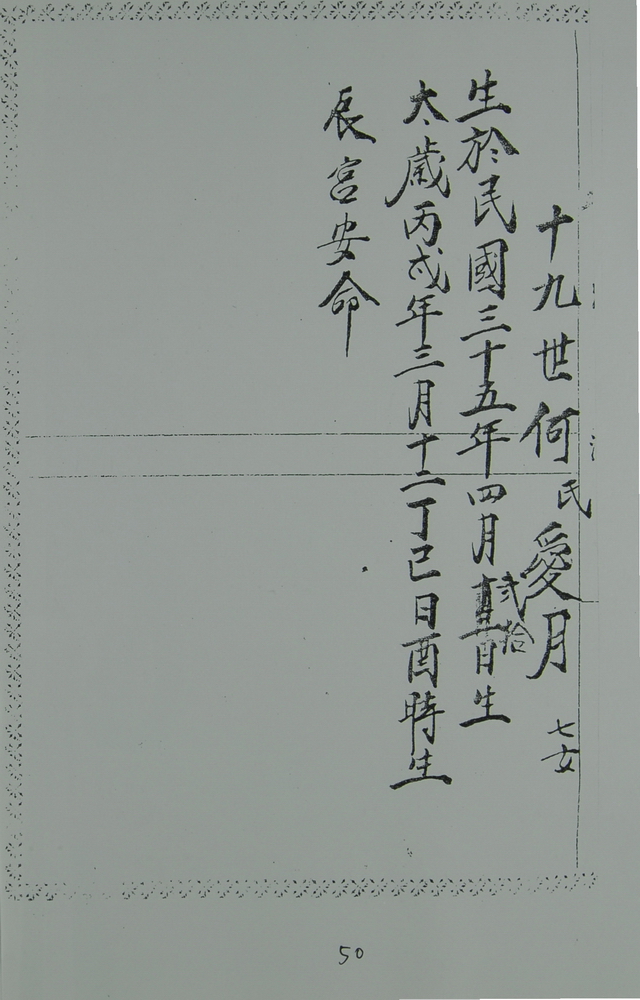 十九世何氏愛月 七女
生於民國三十五年四月弍拾日生
太歲丙戌年三月十二丁巳日酉時生
辰宮安命
50